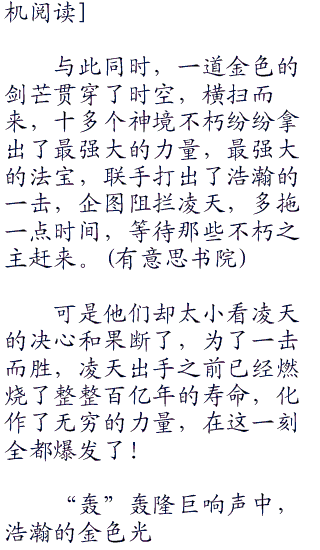 机阅读]
与此同时，一道金色的
剑芒贯穿了时空，横扫而
来，十多个神境不朽纷纷拿
出了最强大的力量，最强大
的法宝，联手打出了浩瀚的
一击，企图阻拦凌天，多拖
一点时间，等待那些不朽之
主赶来。(有意思书院)
可是他们却太小看凌天
的决心和果断了，为了一击
而胜，凌天出手之前已经燃
烧了整整百亿年的寿命，化
作了无穷的力量，在这一刻
全都爆发了！
“轰”轰隆巨响声中，
浩瀚的金色光